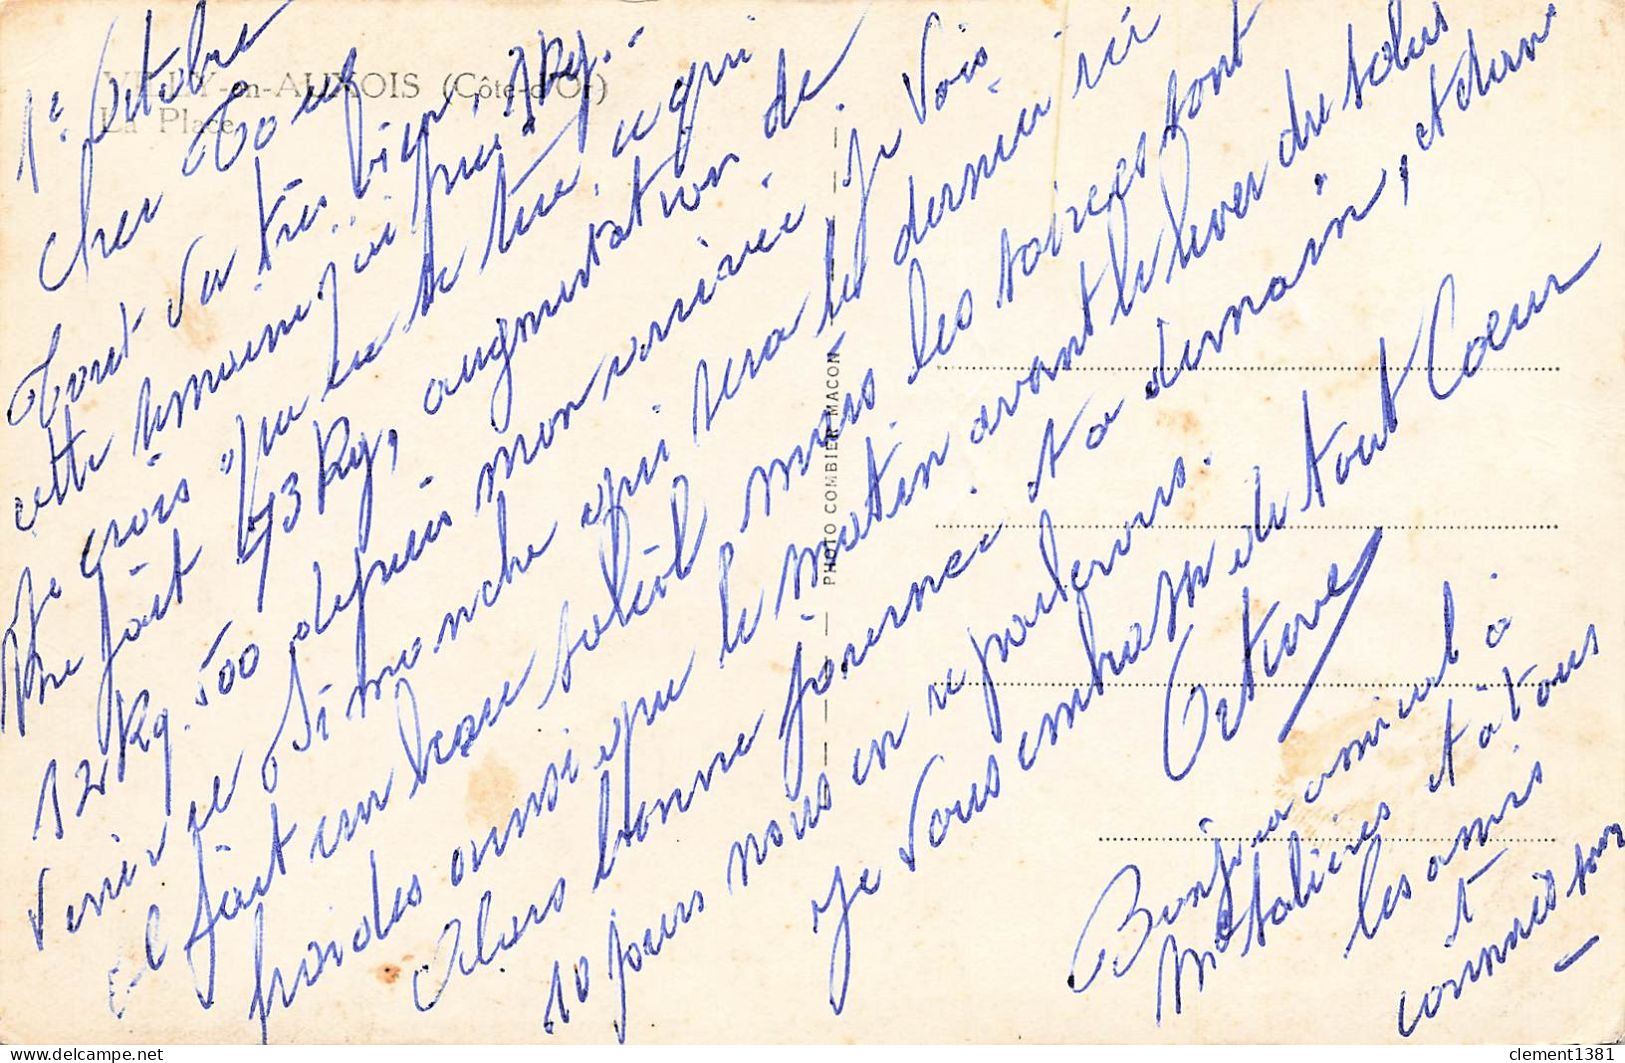 VILLY-en-AUXOIS (Côte-d'Or)
La Place
1er Octobre
Cher Toeuf
Tout va très bien,
cette semaine j'ai pris 3 Kg.-
Je crois que tu
me fait 73 Kg, augmentation de
12 Kg. 500 depuis mon arrivée. je vois
venir ce Dimanche qui sera le dernier ici
il fait un beau soleil mais les soirées sont
froides ainsi que le matin avant le lever du soleil
Alors bonne journée. et a demain, et dans
10 jours nous en reparlerons.
je vous embrasse de tout Coeur
Octave
Bonjour amical à
et à tous
les amis
et
connaissan
PHOTO COMBIER MACON
clement1381